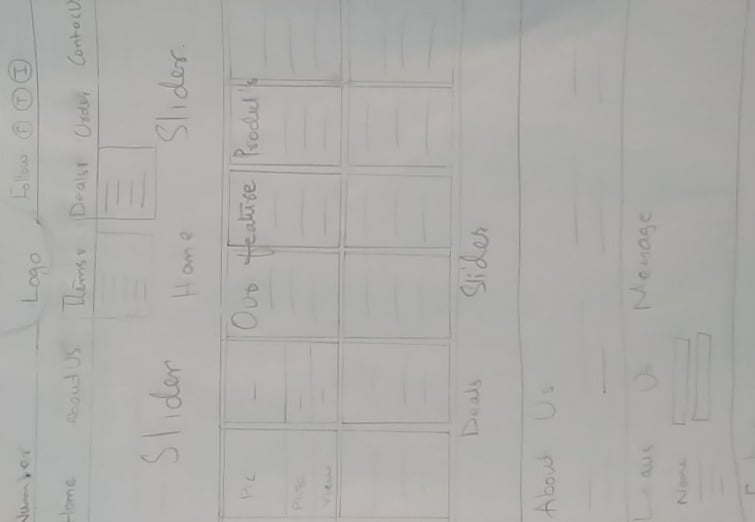 Number Logo Follow F T I
Home About Us Items v Deals v Order Contact
Slider Slider.
Home
Our feature Produt's
Pic
Price
View
Deals Slides
About Us
Leave Us Message
Name